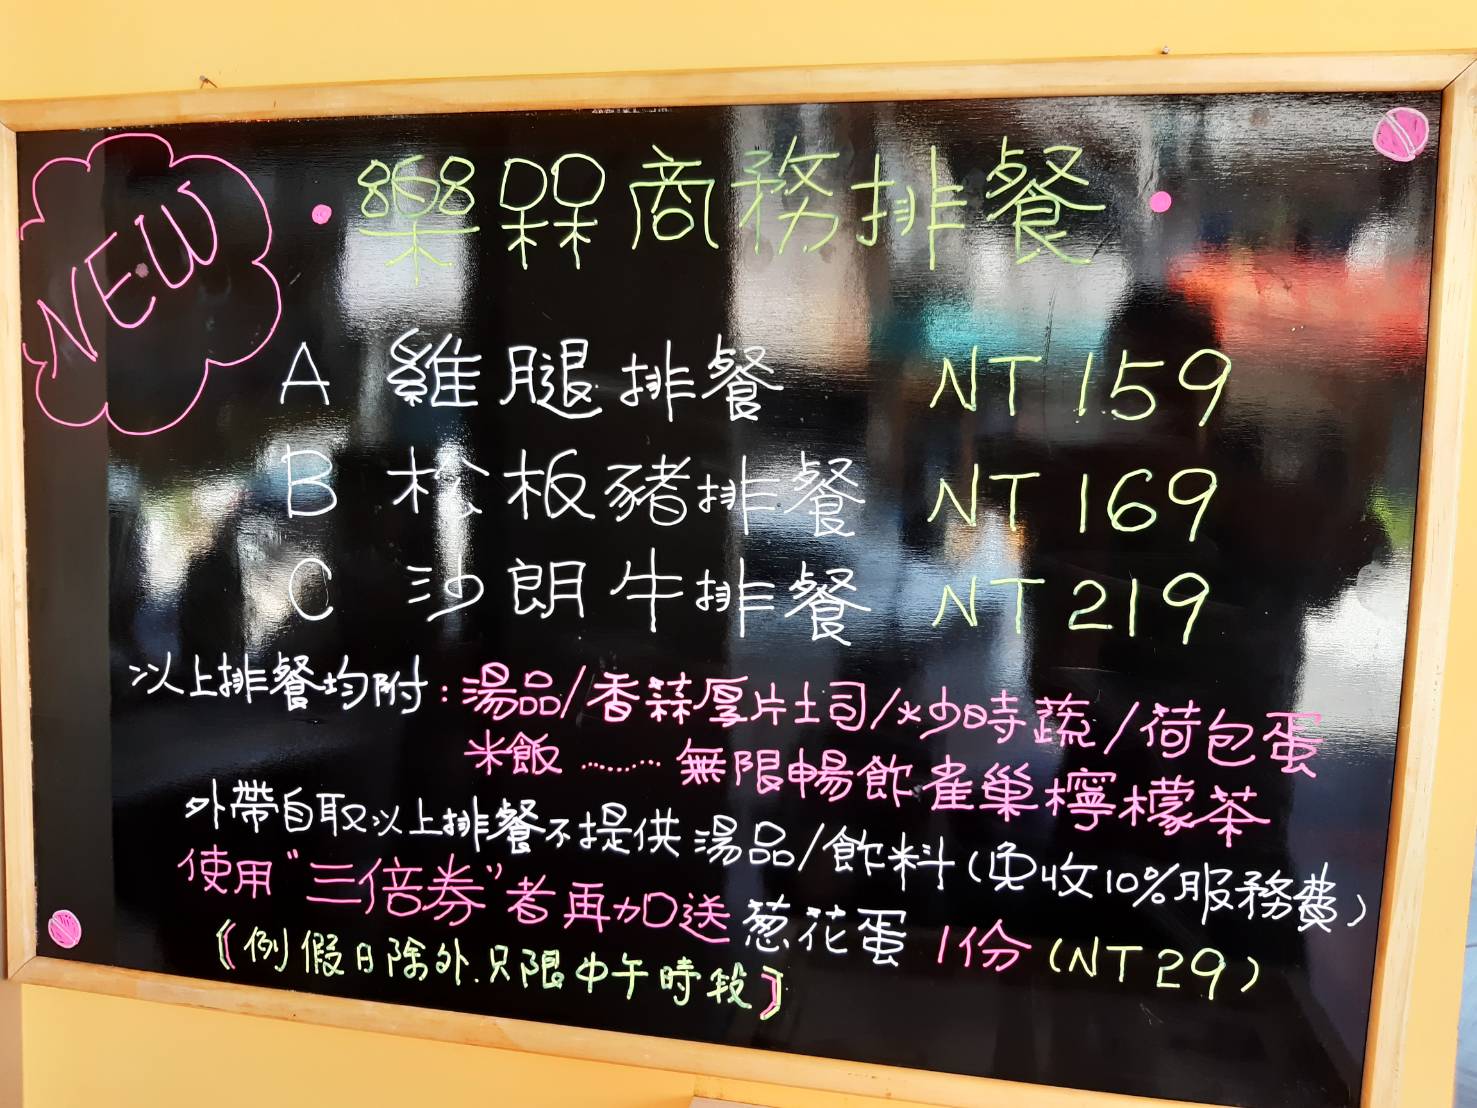 NEW
·樂槑商務排餐·
A 雞腿排餐 NT 159
B 松板豬排餐 NT 169
C 沙朗牛排餐 NT 219
以上排餐均附：湯品/香蒜厚片土司/炒時蔬/荷包蛋
米飯……… 無限暢飲雀巢檸檬茶
外帶自取以上排餐不提供湯品/飲料(免收10%服務費)
使用"三倍券"者再加送蔥花蛋1份(NT29)
〖例假日除外.只限中午時段〗